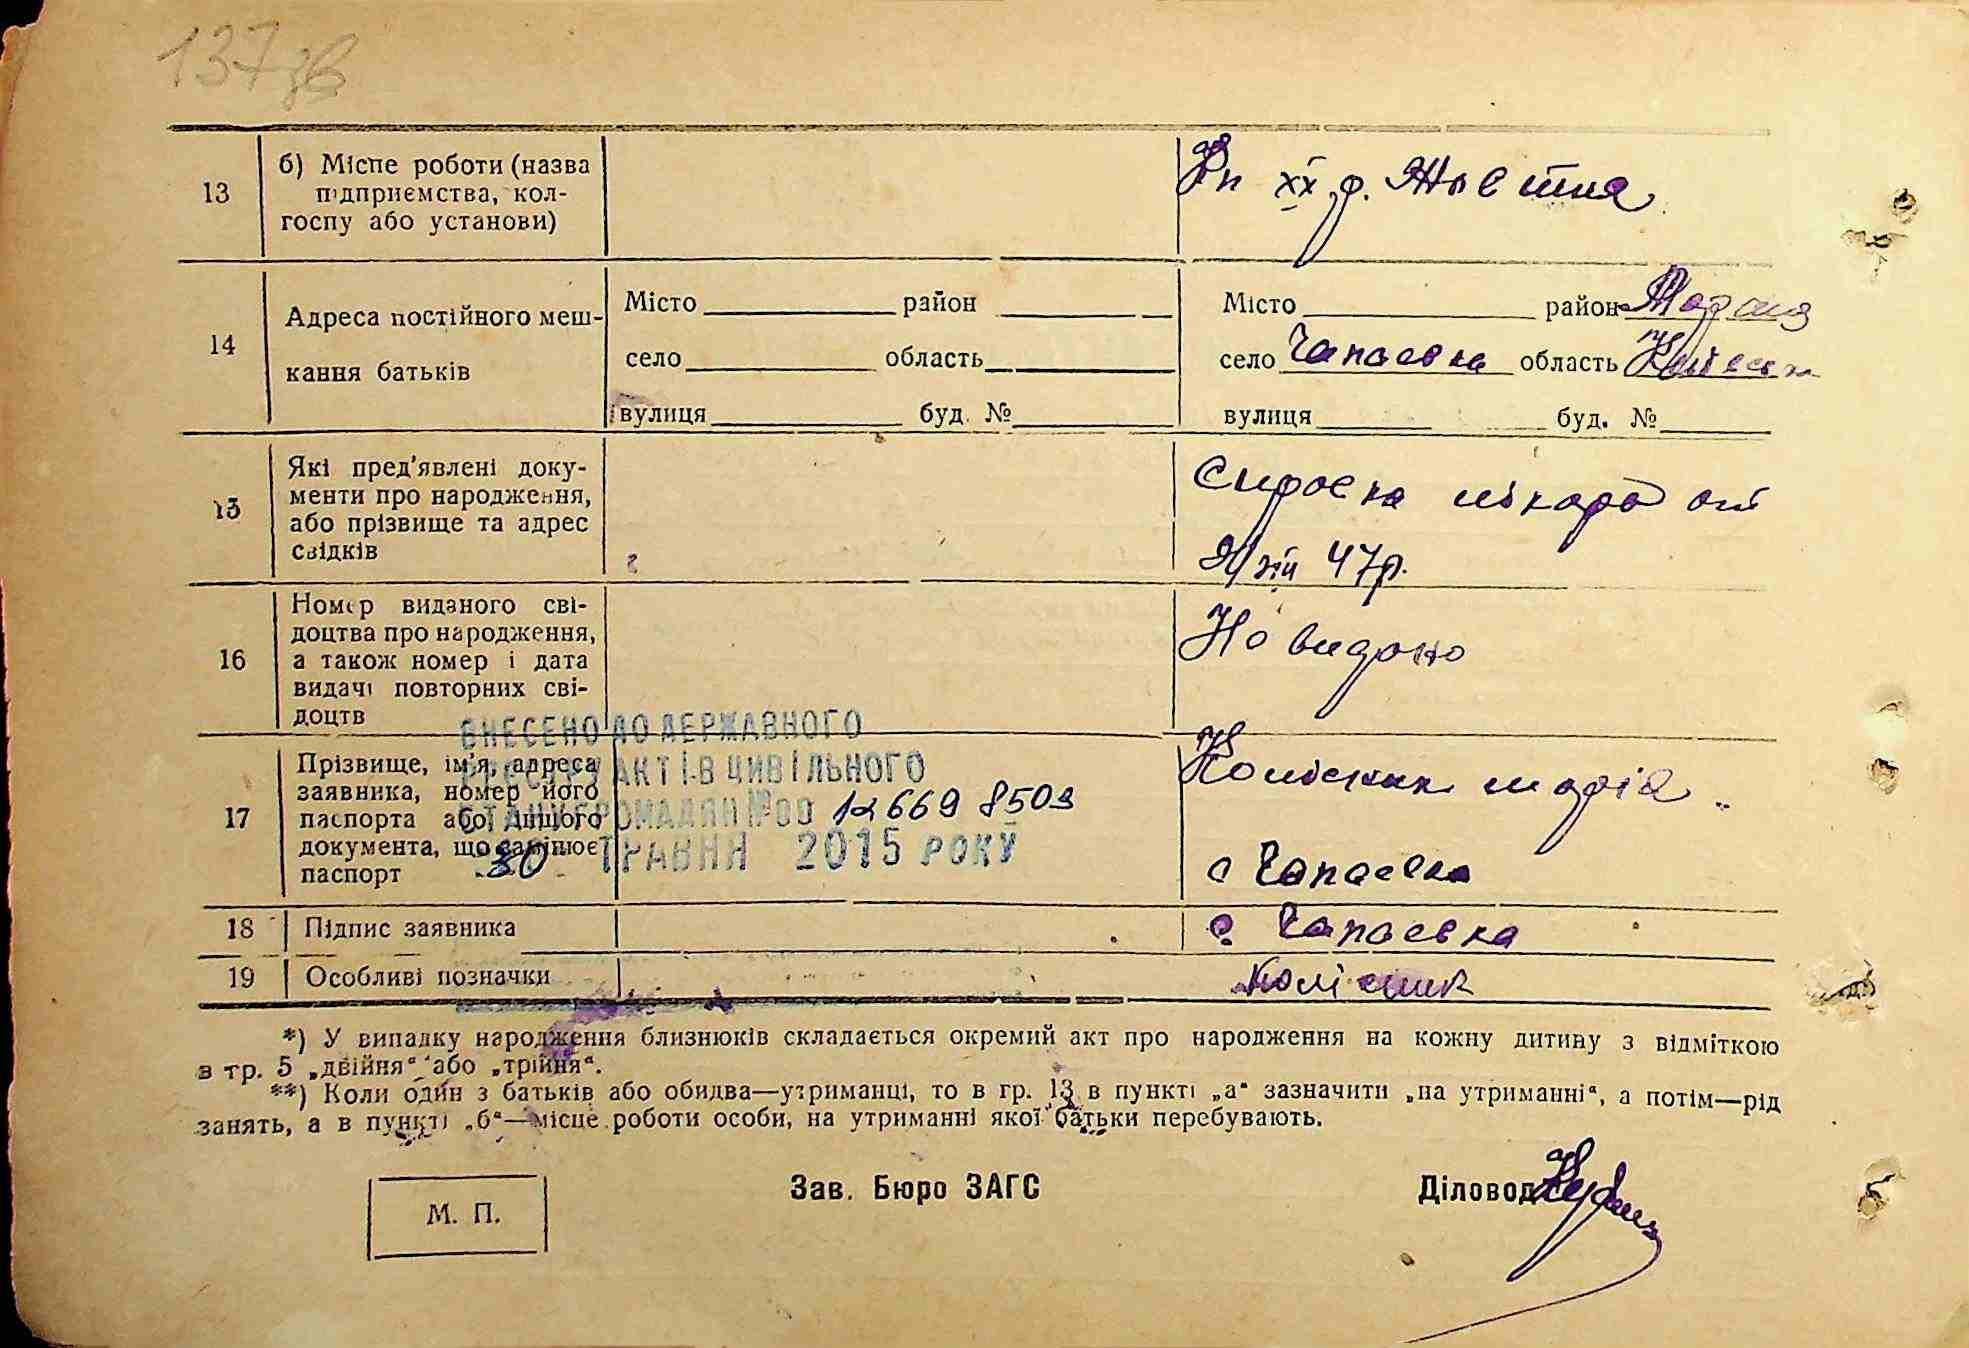 137зв
13
б) Місце роботи (назва
підприємства, кол-
госпу або установи)
Кп ХХ р. Жовтня
14
Адреса постійного меш-
кання батьків
Місто район
село область
вулиця буд. №
Місто район
село Чапаевка область
вулиця буд. №
15
Які пред'явлені доку-
менти про народження,
або прізвище та адрес
свідків
47р.
16
Номер виданого сві-
доцтва про народження,
а також номер і дата
видачі повторних сві-
доцтв
Не видано
17
Прізвище, ім'я, адреса
заявника, номер його
паспорта або іншого
документа, що замінює
паспорт
ВНЕСЕНО ДО ДЕРЖАВНОГО
РЕЄСТРУ АКТІВ ЦИВІЛЬНОГО
СТАНУ ГРОМАДЯН №00 12669 8503
30 ТРАВНЯ 2015 РОКУ
Колісник Марія
с Чапаевка
18
Підпис заявника
с. Чапаевка
19
Особливі позначки
Колісник
*) У випадку народження близнюків складається окремий акт про народження на кожну дитину з відміткою
в гр. 5 „двійня“ або „трійня“.
**) Коли один з батьків або обидва—утриманці, то в гр. 13 в пункті „а“ зазначити „на утриманні“, а потім—рід
занять, а в пункті „б“—місце роботи особи, на утриманні якої батьки перебувають.
М. П.
Зав. Бюро ЗАГС
Діловод